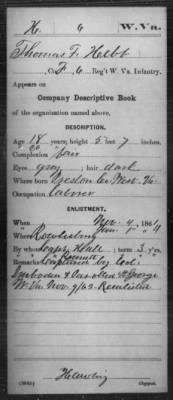 H 6 W.Va.
Thomas F. Helbt
, Co. F, 6 Reg't W. Va. Infantry.
Appears on
Company Descriptive Book
of the organization named above.
DESCRIPTION.
Age 18 years; height 5 feet 7 inches.
Complexion fair
Eyes gray; hair dark
Where born Preston Co West Va.
Occupation Laborer
ENLISTMENT.
When Nov. 4, 1861
When Reenlisting Jan. 1
By whom Hall; term 3 y'rs.
Remarks Captured by Col.
Imboden St George
W. Va Nov 9/62 Reenlisted
(383g) Copyist.